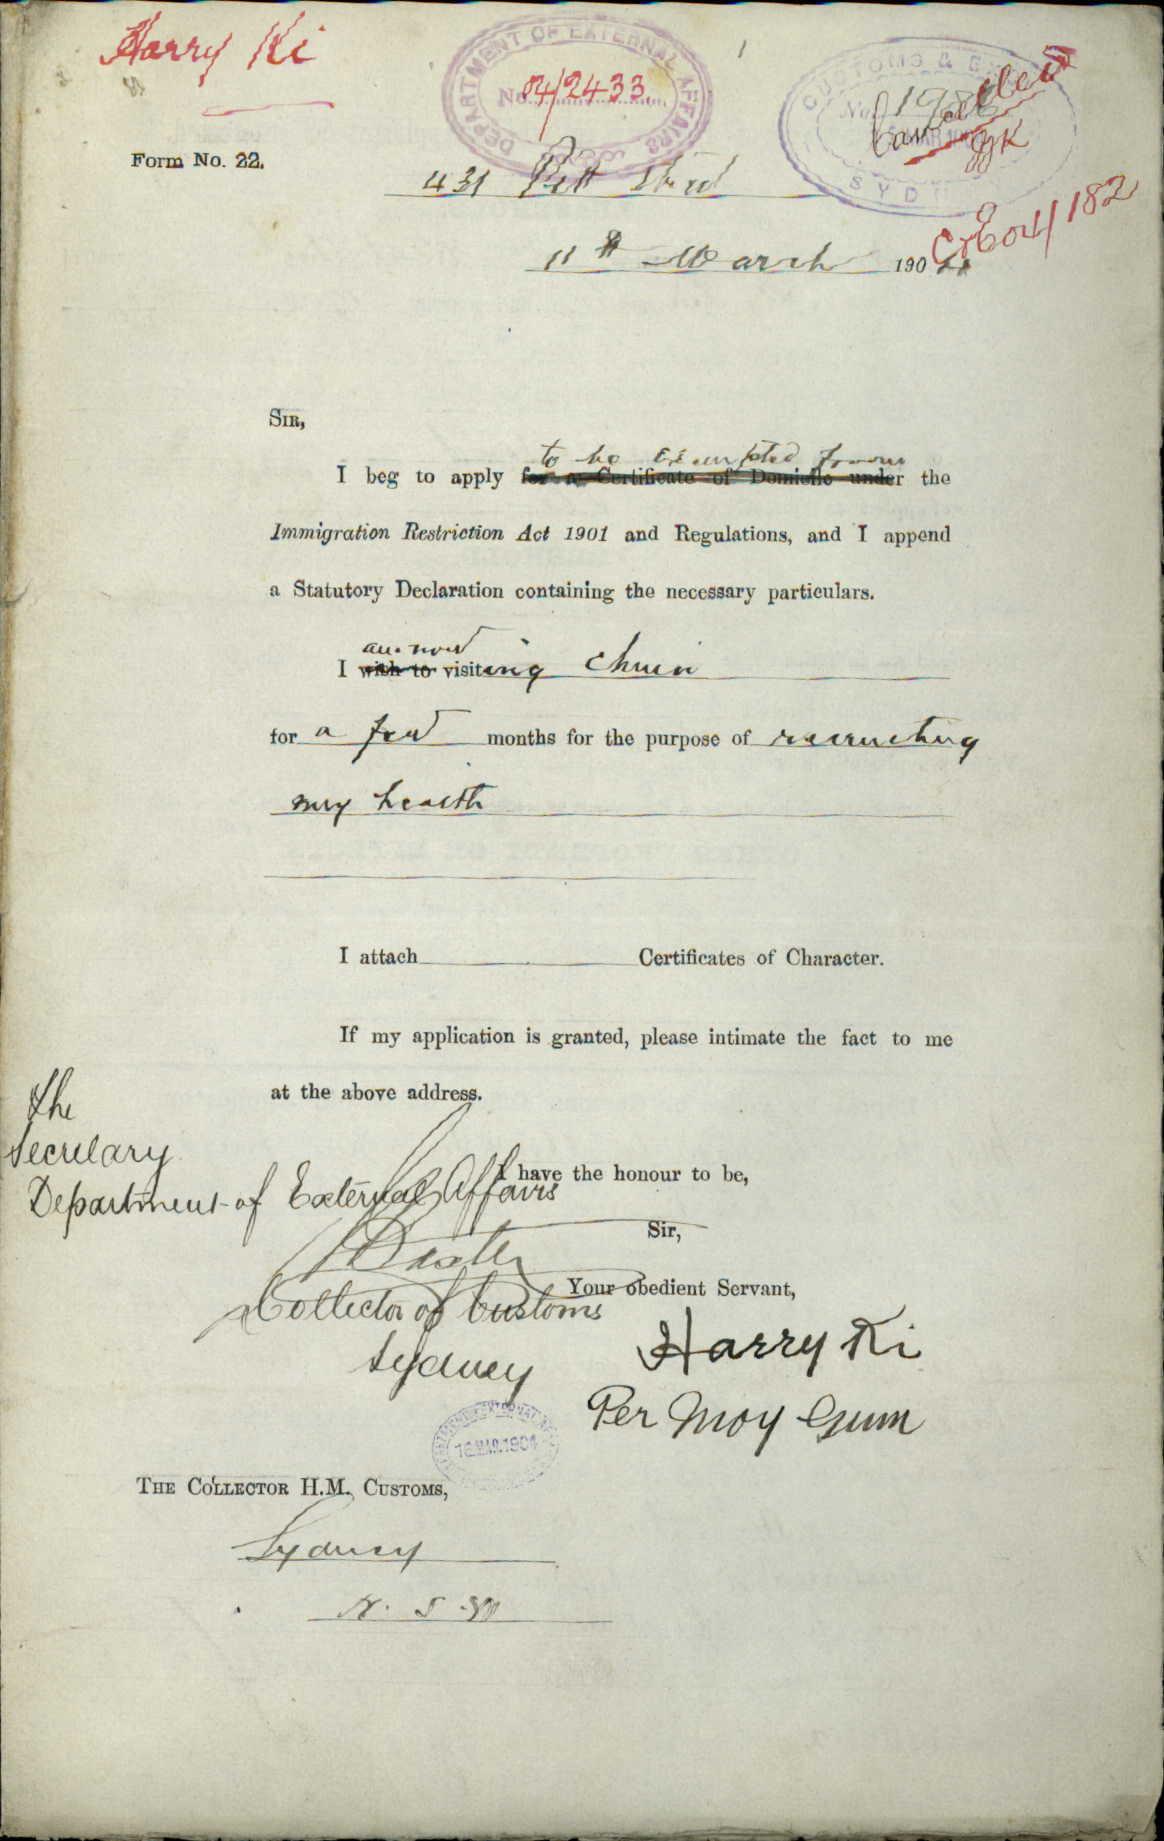 Harry Ki
DEPARTMENT OF EXTERNAL AFFAIRS
No. 04/2433
CUSTOMS &
No. 198
Cancelled
SYD
C&E 04/182
Form No. 22.
431 Pitt Street
11th March 1904
SIR,
to be exempted from
I beg to apply for a Certificate of Domicile under the
Immigration Restriction Act 1901 and Regulations, and I append
a Statutory Declaration containing the necessary particulars.
am now
I wish to visiting China
for a few months for the purpose of recruiting
my health
I attach Certificates of Character.
If my application is granted, please intimate the fact to me
at the above address.
The
Secretary
Department of External Affairs
I have the honour to be,
Sir,
Your obedient Servant,
Collector of Customs
Sydney
Harry Ki
Per Moy Gum
16 MAR 1904
THE COLLECTOR H.M. CUSTOMS,
Sydney
N. S. W